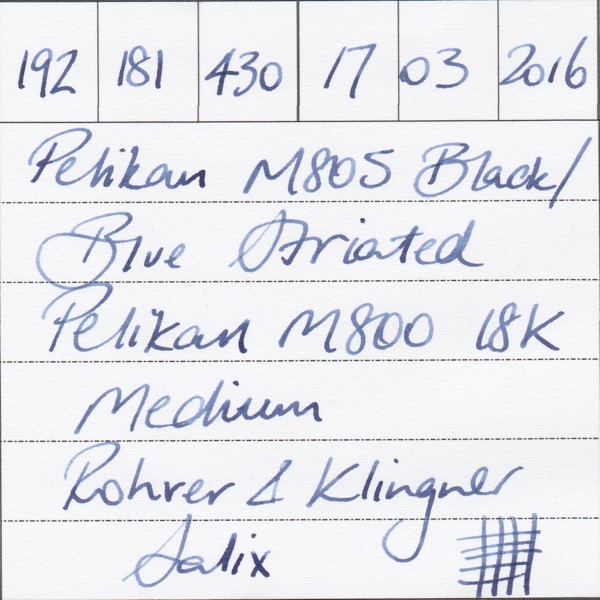 192 181 430 17 03 2016
Pelikan M805 Black/
Blue Striated
Pelikan M800 18K
Medium
Rohrer & Klingner
Salix